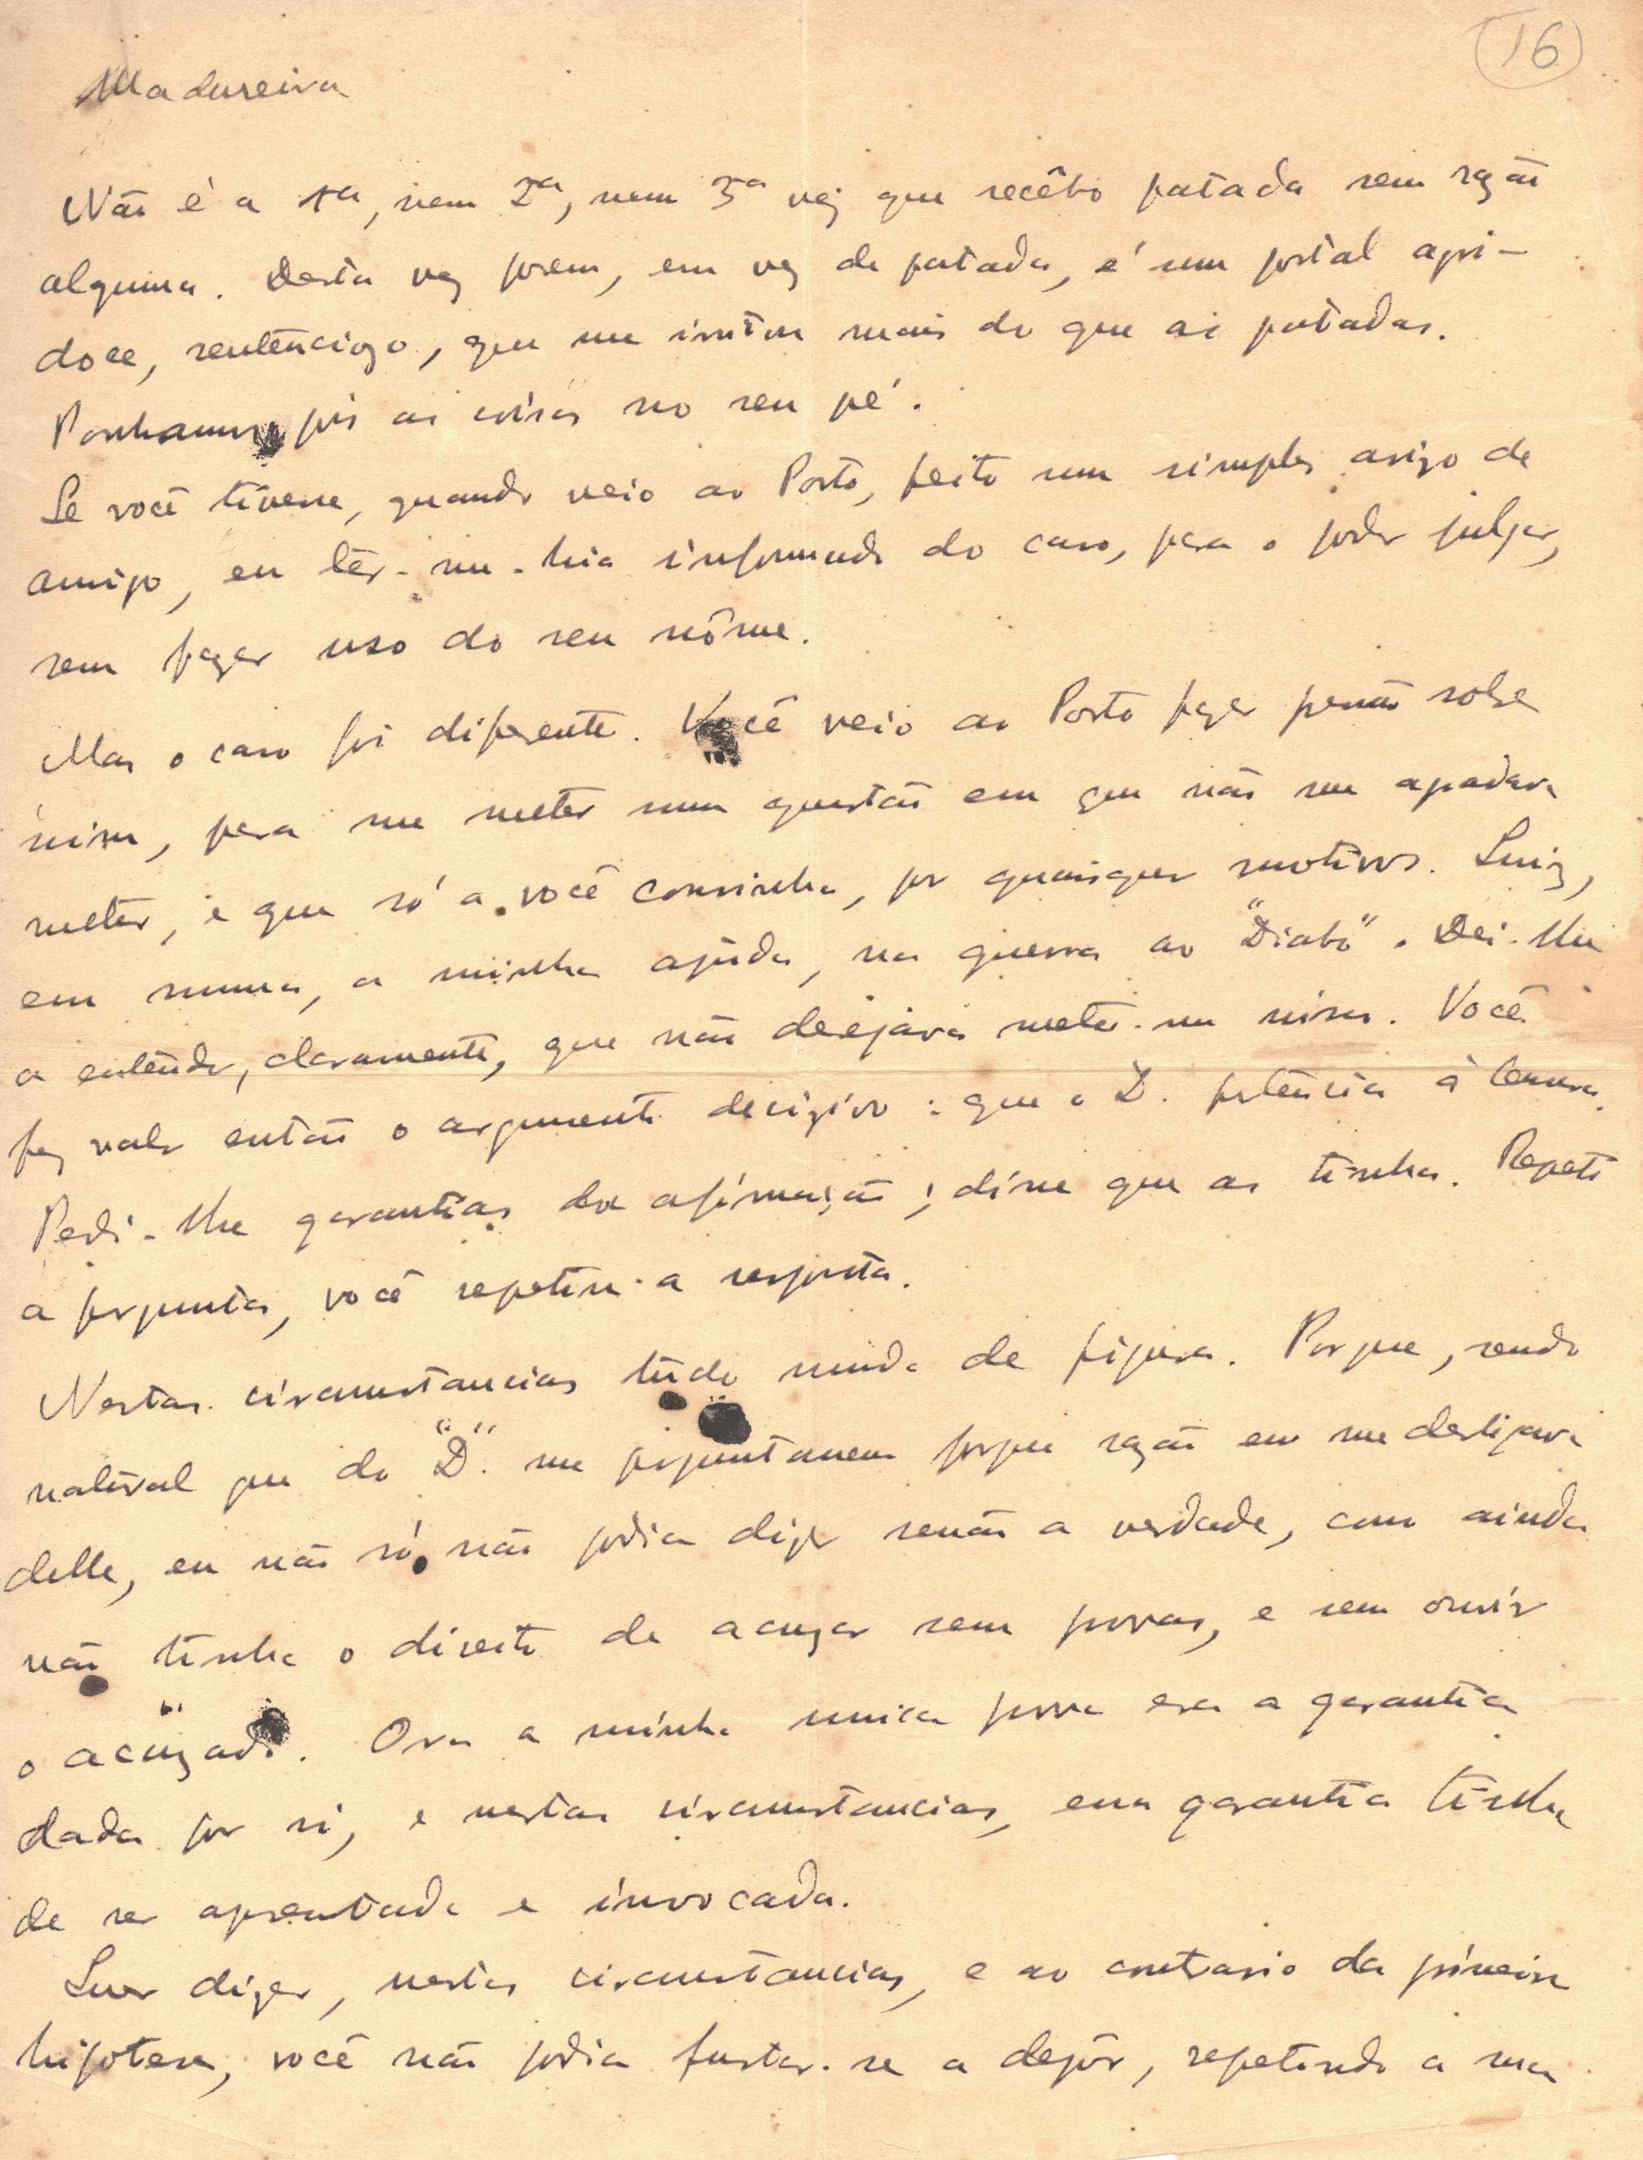 16
Madureira
Não é a 1ª, nem 2ª, nem 3ª vez que recêbo patada sem razão
alguma. Desta vez porem, em vez de patada, é um postal agri-
doce, sentenciozo, que me irritou mais do que as patadas.
Ponhamos pois as coisas no seu pé.
Se você tivesse, quando veio ao Porto, feito um simples avizo de
amigo, eu ter-me-hia informado do caso, para o poder julgar,
sem fazer uso do seu nôme.
Mas o caso foi diferente. Você veio ao Porto fazer pressão sobre
mim, para me meter numa questão em que não me agradava
meter, e que só a você convinha, por quaisquer motivos. Quiz,
em suma, a minha ajuda, na guerra ao "Diabo". Dei-lhe
a entender, claramente, que não desejava meter-me nisso. Você
fez valer então o argumento decizivo: que o D. pertencia á Censura.
Pedi-lhe garantias da afirmação; disse que as tinha. Repeti
a pergunta, você repetiu a resposta.
Nestas circunstancias tudo muda de figura. Porque, sendo
natural que do "D." me perguntassem porque razão eu me desligava
delle, eu não só não podia dizer senão a verdade, como ainda
não tinha o direito de acuzar sem provas, e sem ouvir
o acuzado. Ora a minha unica prova era a garantia
dada por si, e nestas circunstancias, essa garantia tinha
de ser apresentada e invocada.
Quer dizer, nestas circunstancias, e ao contrario da primeira
hipotese, você não podia furtar-se a depôr, repetindo a sua